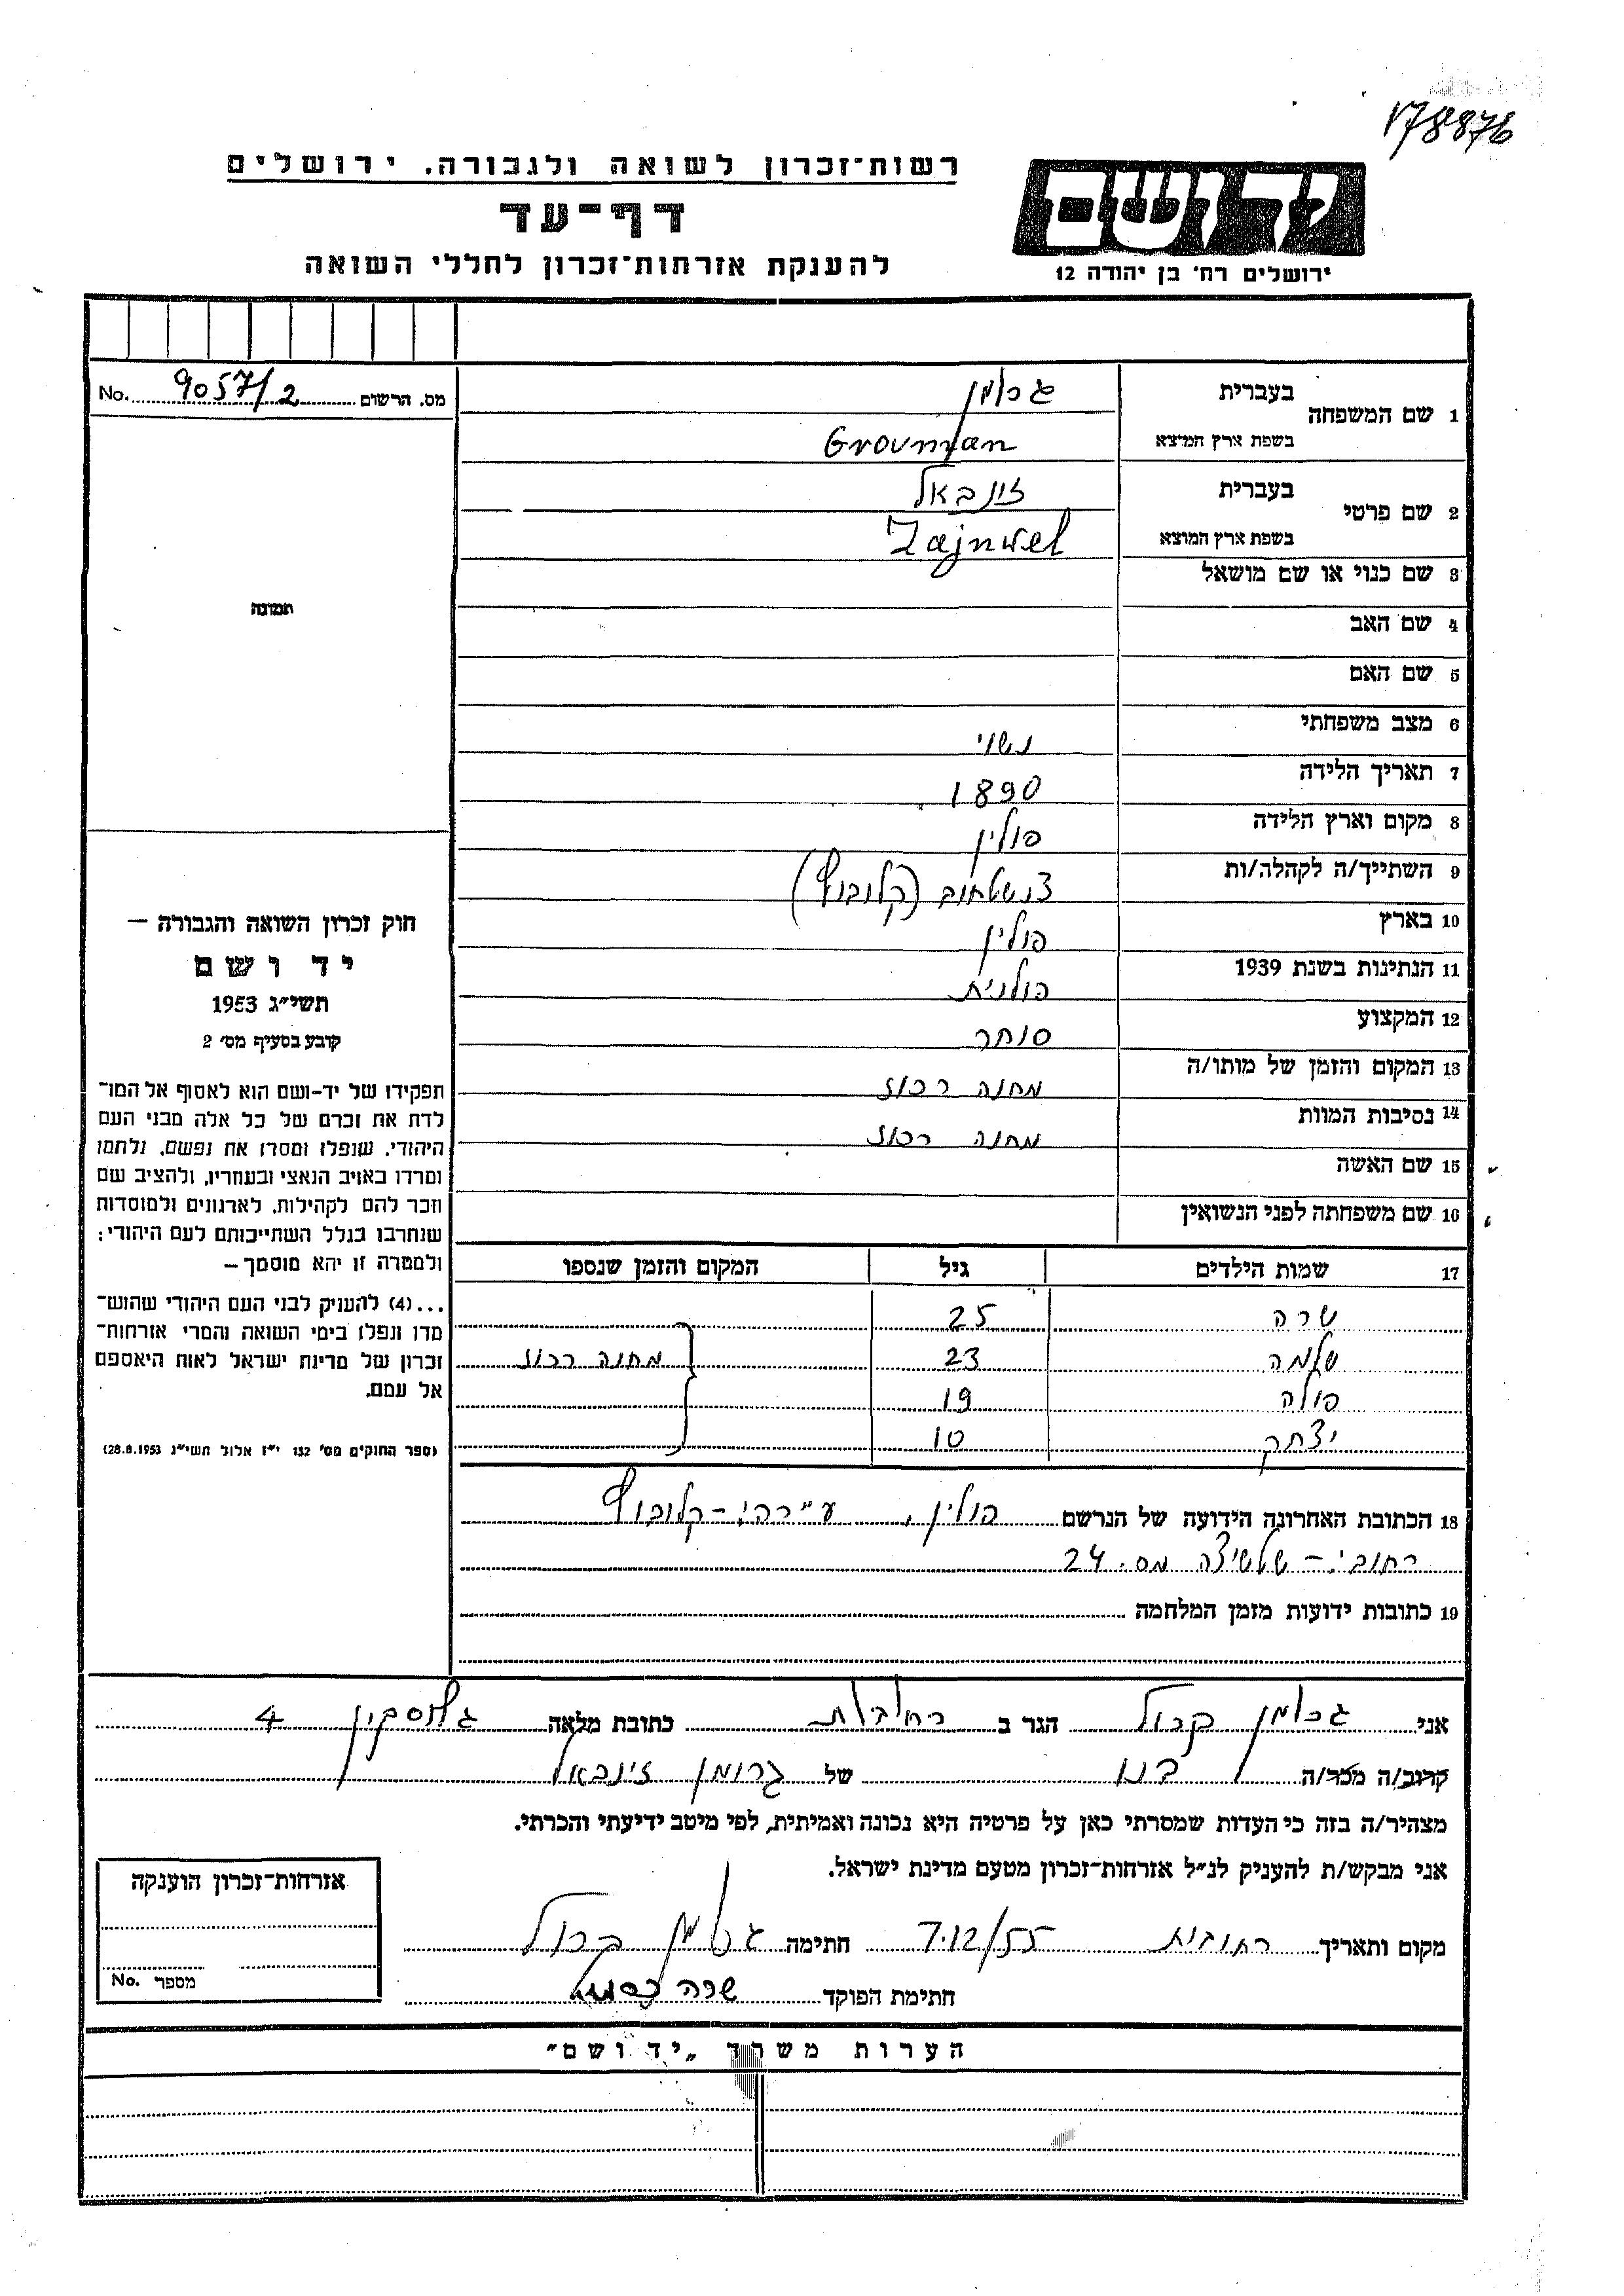 178876
רשות־זכרון לשואה ולגבורה. ירושלים
דף־עד
להענקת אזרחות־זכרון לחללי השואה
יד ושם
ירושלים רח' בן יהודה 12
מס. הרשום 9057/2 No.
1 שם המשפחה
בעברית גרומן
בשפת ארץ המוצא Grouman
2 שם פרטי
בעברית זינבאל
בשפת ארץ המוצא Zajnwel
3 שם כנוי או שם מושאל
4 שם האב
5 שם האם
6 מצב משפחתי נשוי
7 תאריך הלידה 1890
8 מקום וארץ הלידה פולין
9 השתייך/ה לקהלה/ות צ'נשטחוב (קלובוצק)
10 בארץ פולין
11 הנתינות בשנת 1939 פולנית
12 המקצוע סוחר
13 המקום והזמן של מותו/ה מחנה רכוז
14 נסיבות המוות מחנה רכוז
15 שם האשה
16 שם משפחתה לפני הנשואין
17 שמות הילדים גיל המקום והזמן שנספו
שרה 25
שלמה 23 מחנה רכוז
פולה 19
יצחק 10
18 הכתובת האחרונה הידועה של הנרשם פולין, עירה:-
רחוב:- מס. 24
19 כתובות ידועות מזמן המלחמה
תמונה
חוק זכרון השואה והגבורה —
יד ושם
תשי״ג 1953
קובע בסעיף מס' 2
תפקידו של יד-ושם הוא לאסוף אל המו־
לדת את זכרם של כל אלה מבני העם
היהודי, שנפלו ומסרו את נפשם, נלחמו
ומרדו באויב הנאצי ובעוזריו, ולהציב שם
וזכר להם לקהילות, לארגונים ולמוסדות
שנחרבו בגלל השתייכותם לעם היהודי:
ולמטרה זו יהא מוסמך—
...(4) להעניק לבני העם היהודי שהוש־
מדו ונפלו בימי השואה והמרי אזרחות־
זכרון של מדינת ישראל לאות היאספם
אל עמם.
(ספר החוקים מס' 132 י״ז אלול תשי״ג 28.8.1953)
אני גרומן קרול הגר ב רחובות כתובת מלאה 4
קרוב/ה מכר/ה בנו של גרומן זינבאל
מצהיר/ה בזה כי העדות שמסרתי כאן על פרטיה היא נכונה ואמיתית, לפי מיטב ידיעתי והכרתי.
אני מבקש/ת להעניק לנ״ל אזרחות־זכרון מטעם מדינת ישראל.
מקום ותאריך רחובות 7.12/55 חתימה גרומן קרול
חתימת הפוקד שרה
אזרחות־זכרון הוענקה
מספר No.
הערות משרד „יד ושם״